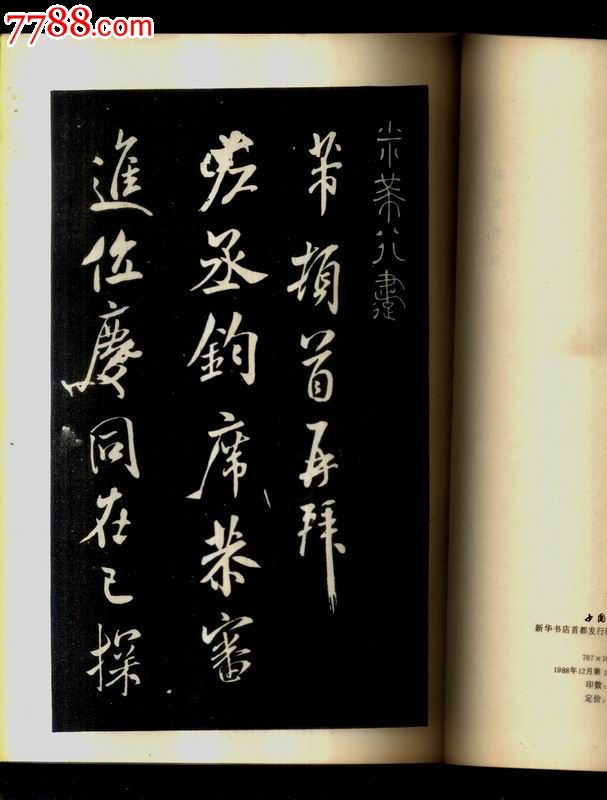 7788.com
米芾行書
芾頓首再拜
丞鈞席恭審
進位慶同在已探
中国
新华书店首都发行
787×1
1988年12月第1
印数:
定价: